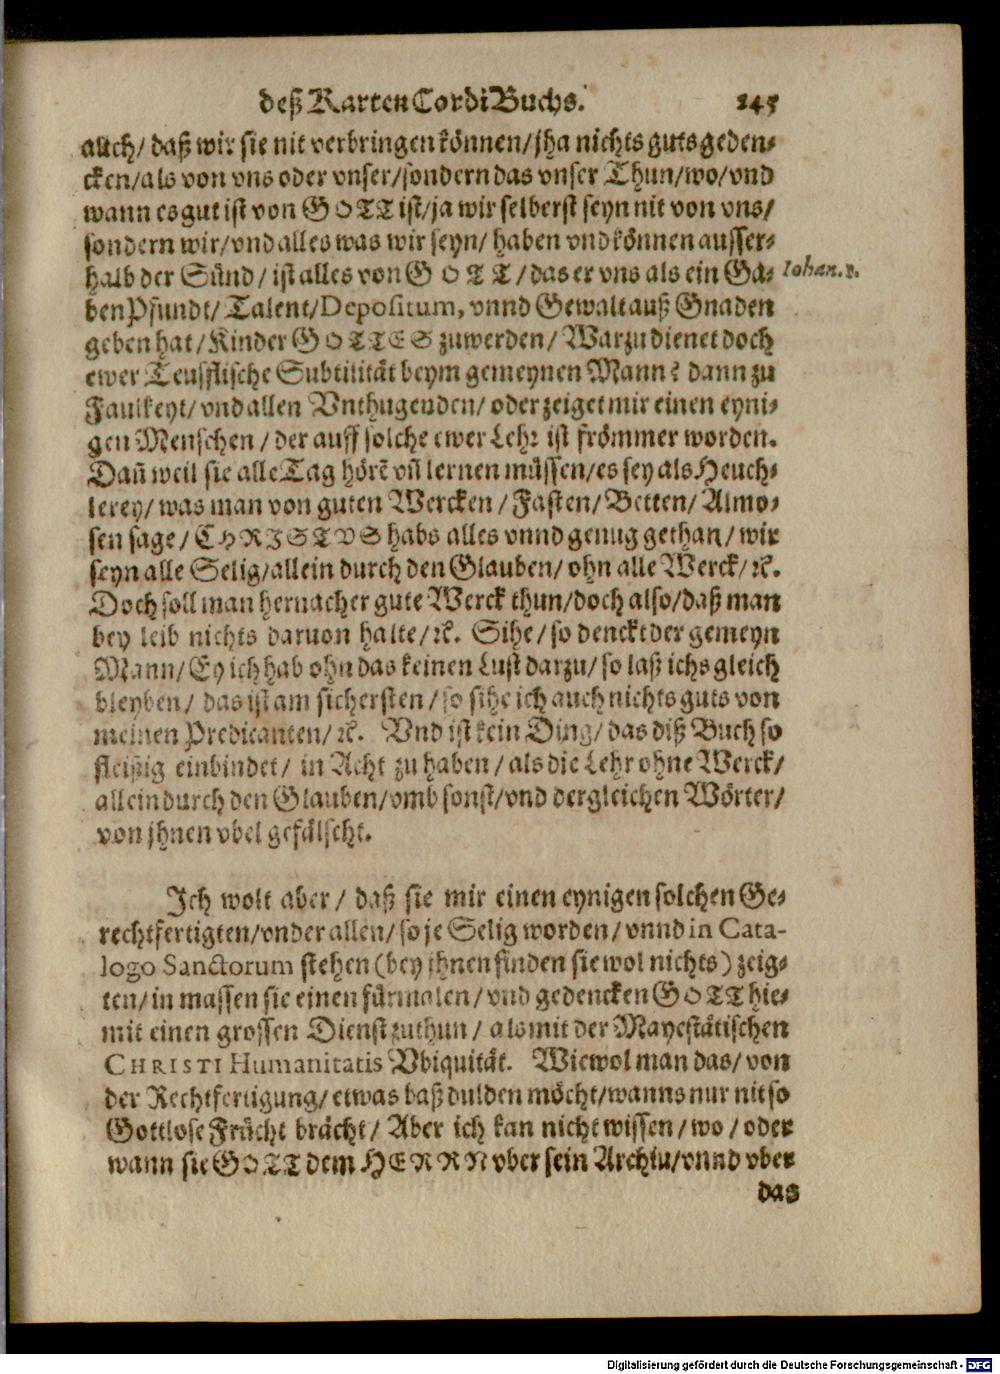 deß Karten Cordi Buchs. 145
auch/ daß wir sie nit verbringen können/ jha nichts guts geden-
cken/ als von vns oder vnser/ sondern das vnser Thun/ wo/ vnd
wann es gut ist von GOTT ist/ ja wir selberst seyn nit von vns/
sondern wir/ vnd alles was wir seyn/ haben vnd können ausser-
halb der Sünd/ ist alles von GOTT/ das er vns als ein Ga- Iohan.1.
ben Pfundt/ Talent/ Depositum, vnnd Gewalt auß Gnaden
geben hat/ Kinder GOTTES zuwerden/ Warzu dienet doch
ewer Teufflische Subtilität beym gemeynen Mann? dann zu
Faulkeyt/ vnd allen Vnthugenden/ oder zeiget mir einen eyni-
gen Menschen/ der auff solche ewer Lehr ist frömmer worden.
Dañ weil sie alle Tag hörē vñ lernen müssen/ es sey als Heuch-
lerey/ was man von guten Wercken/ Fasten/ Betten/ Almo-
sen sage/ CHRISTVS habs alles vnnd genug gethan/ wir
seyn alle Selig/ allein durch den Glauben/ ohn alle Werck/ ꝛc.
Doch soll man hernacher gute Werck thun/ doch also/ daß man
bey leib nichts daruon halte/ ꝛc. Sihe/ so denckt der gemeyn
Mann/ Ey ich hab ohn das keinen Lust darzu/ so laß ichs gleich
bleyben/ das ist am sichersten/ so sihe ich auch nichts guts von
meinen Predicanten/ ꝛc. Vnd ist kein Ding/ das diß Buch so
fleißig einbindet/ in Acht zu haben/ als die Lehr ohne Werck/
allein durch den Glauben/ vmb sonst/ vnd dergleichen Wörter/
von jhnen vbel gefälscht.
Ich wolt aber/ daß sie mir einen eynigen solchen Ge-
rechtfertigten/ vnder allen/ so je Selig worden/ vnnd in Cata-
logo Sanctorum stehen (bey jhnen finden sie wol nichts) zeig-
ten/ in massen sie einen fürmalen/ vnd gedencken GOTT hie-
mit einen grossen Dienst zuthun/ als mit der Mayestätischen
CHRISTI Humanitatis Vbiquität. Wiewol man das/ von
der Rechtfertigung/ etwas baß dulden möcht/ wanns nur nit so
Gottlose Frücht brächt/ Aber ich kan nicht wissen/ wo/ oder
wann sie GOTT dem HERRN vber sein Archiu/ vnnd vber
das
Digitalisierung gefördert durch die Deutsche Forschungsgemeinschaft - DFG